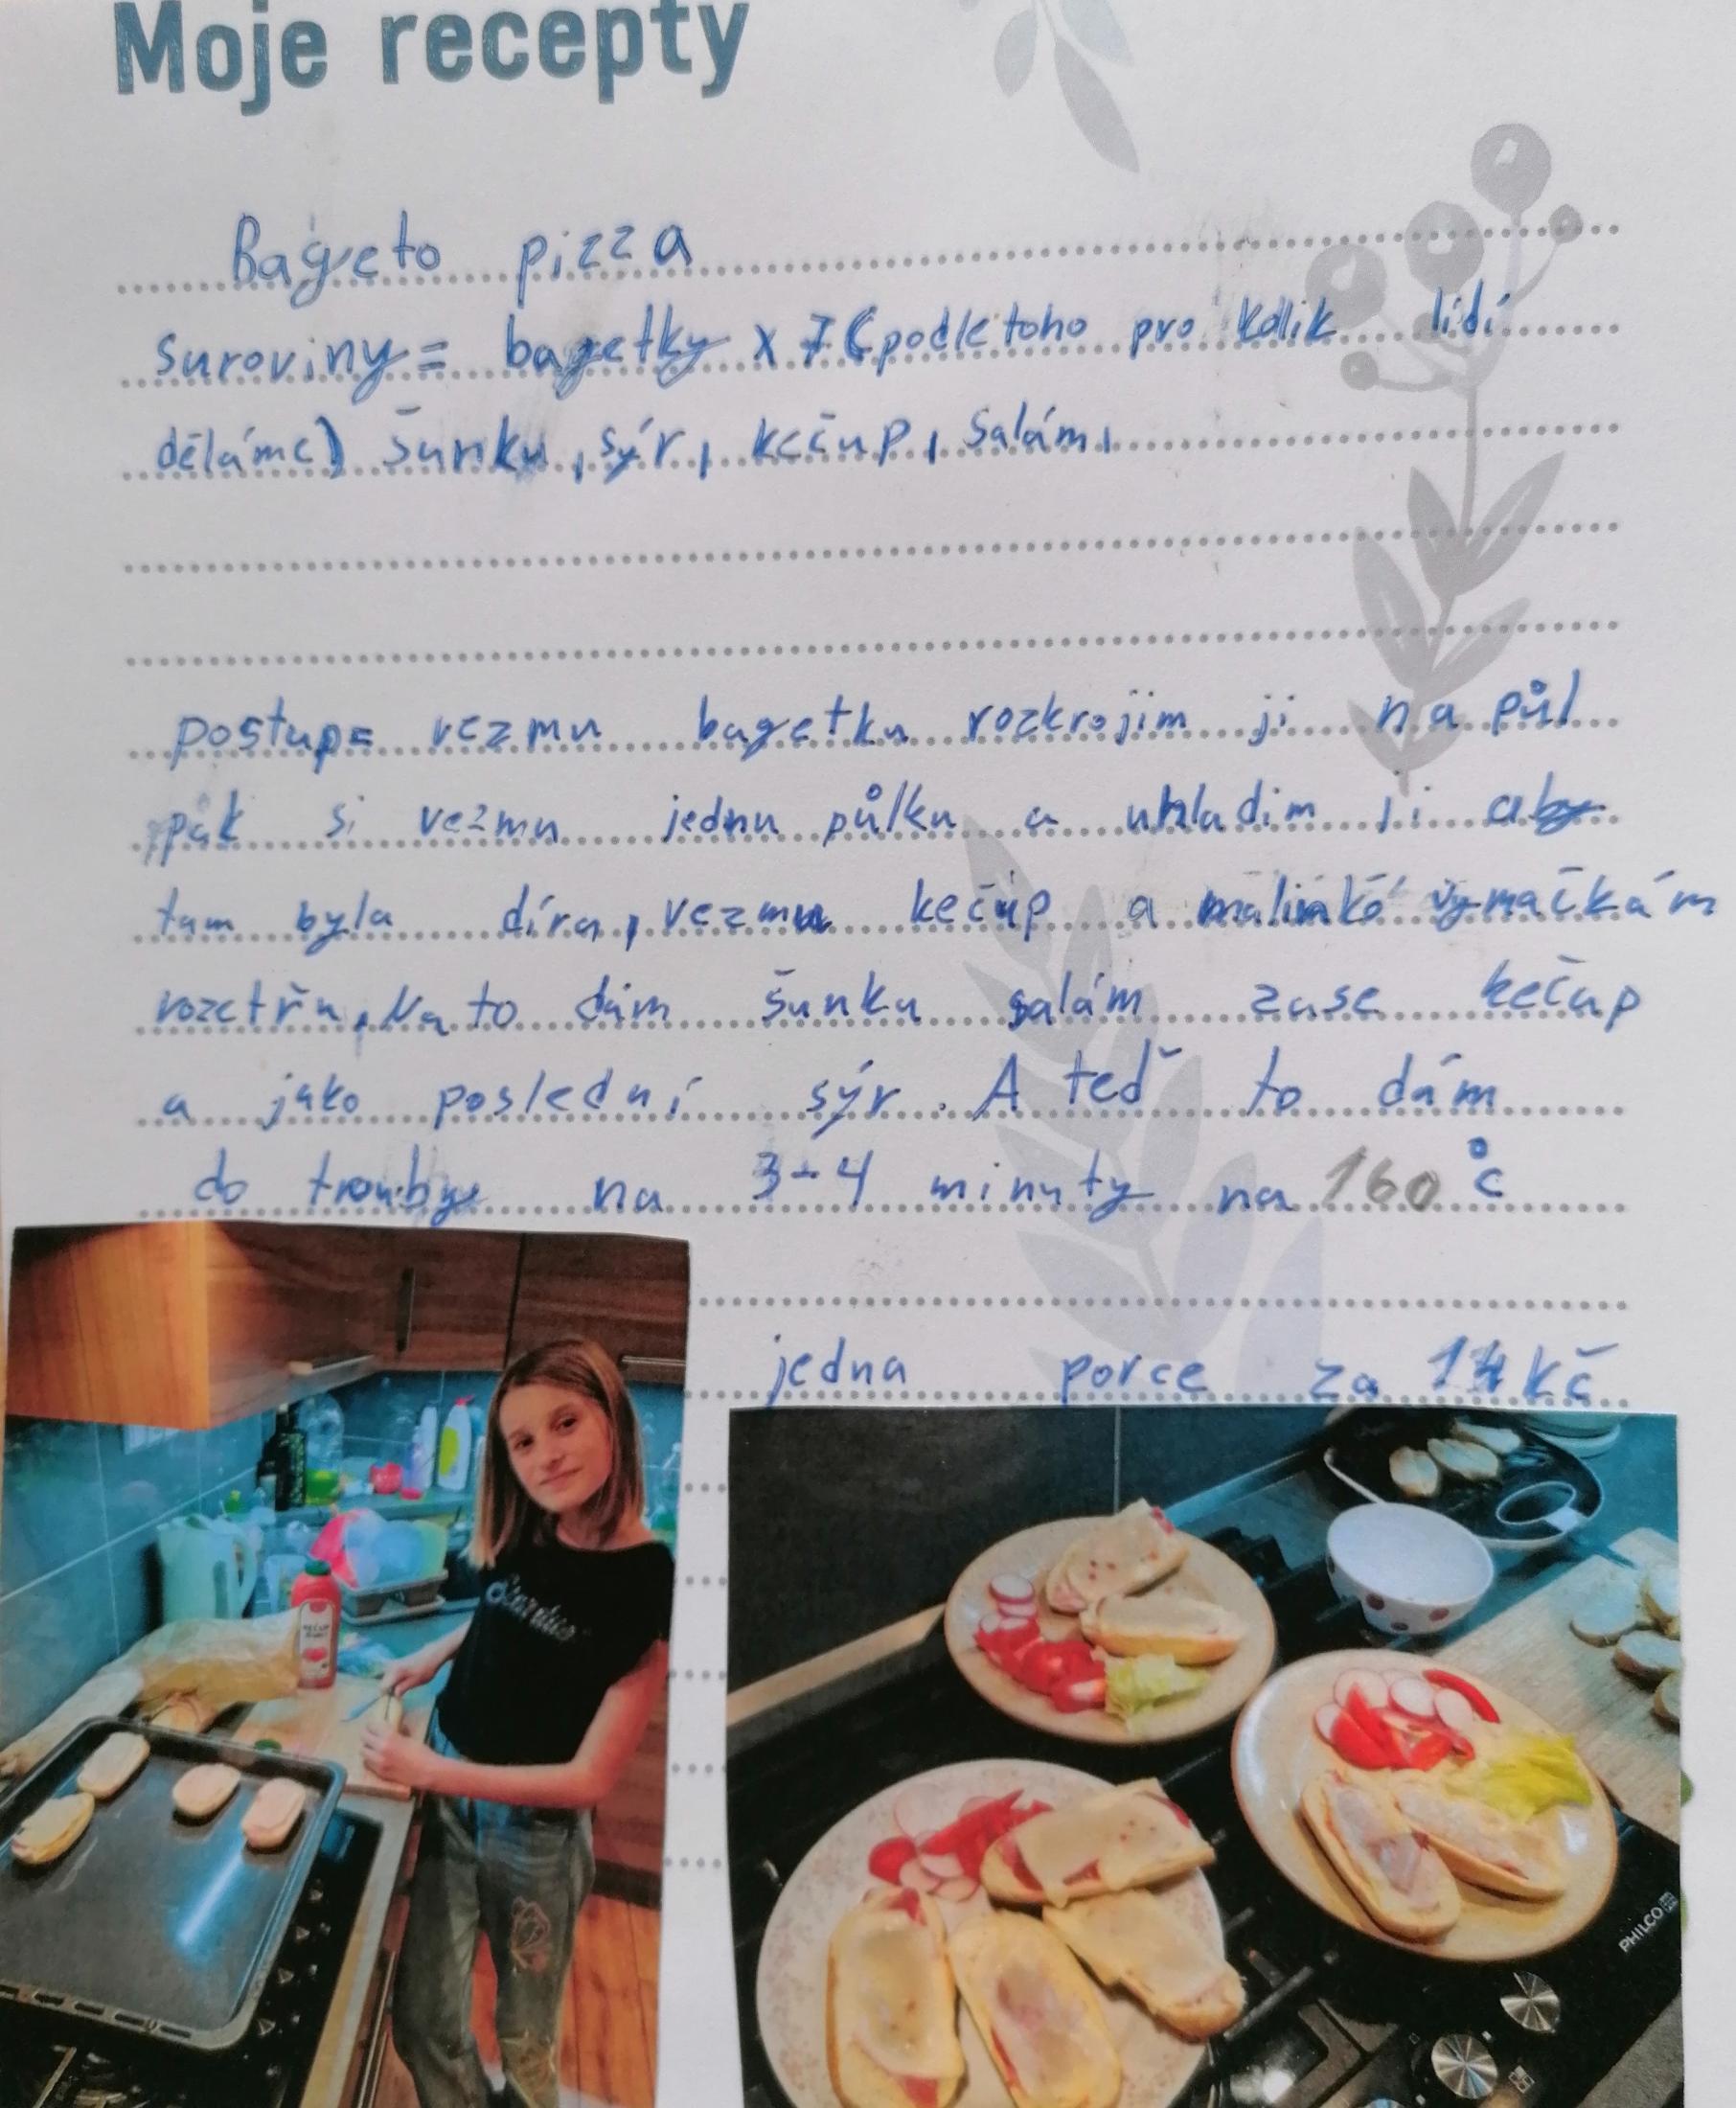 Moje recepty
Bageto pizza
suroviny = bagetky x 7 (podle toho pro kolik lidí
děláme) šunku, sýr, kečup, salám,
postup= vezmu bagetku rozkrojim ji na půl
pak si vezmu jednu půlku a uhladim ji aby
tam byla díra, vezmu kečup a malinké vymačkám
rozetřu, Na to dám šunku salám zase kečup
a jako poslední sýr. A teď to dám
do trouby na 3-4 minuty na 160 °c
jedna porce za Kč
PHILCO